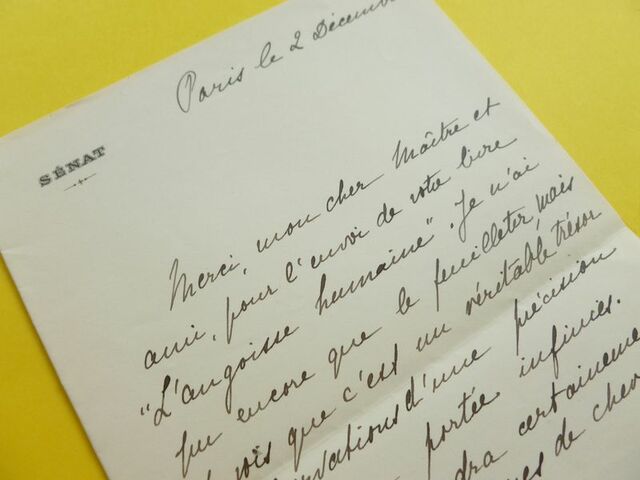 Paris le 2 Décemb
SÉNAT
Merci, mon cher Maître et
ami, pour l'envoi de votre livre
"L'angoisse humaine". Je n'ai
pu encore que le feuilleter, mais
vois que c'est un véritable trésor
rvations d'une précision
portée infinies.
dra certaineme
es de chev